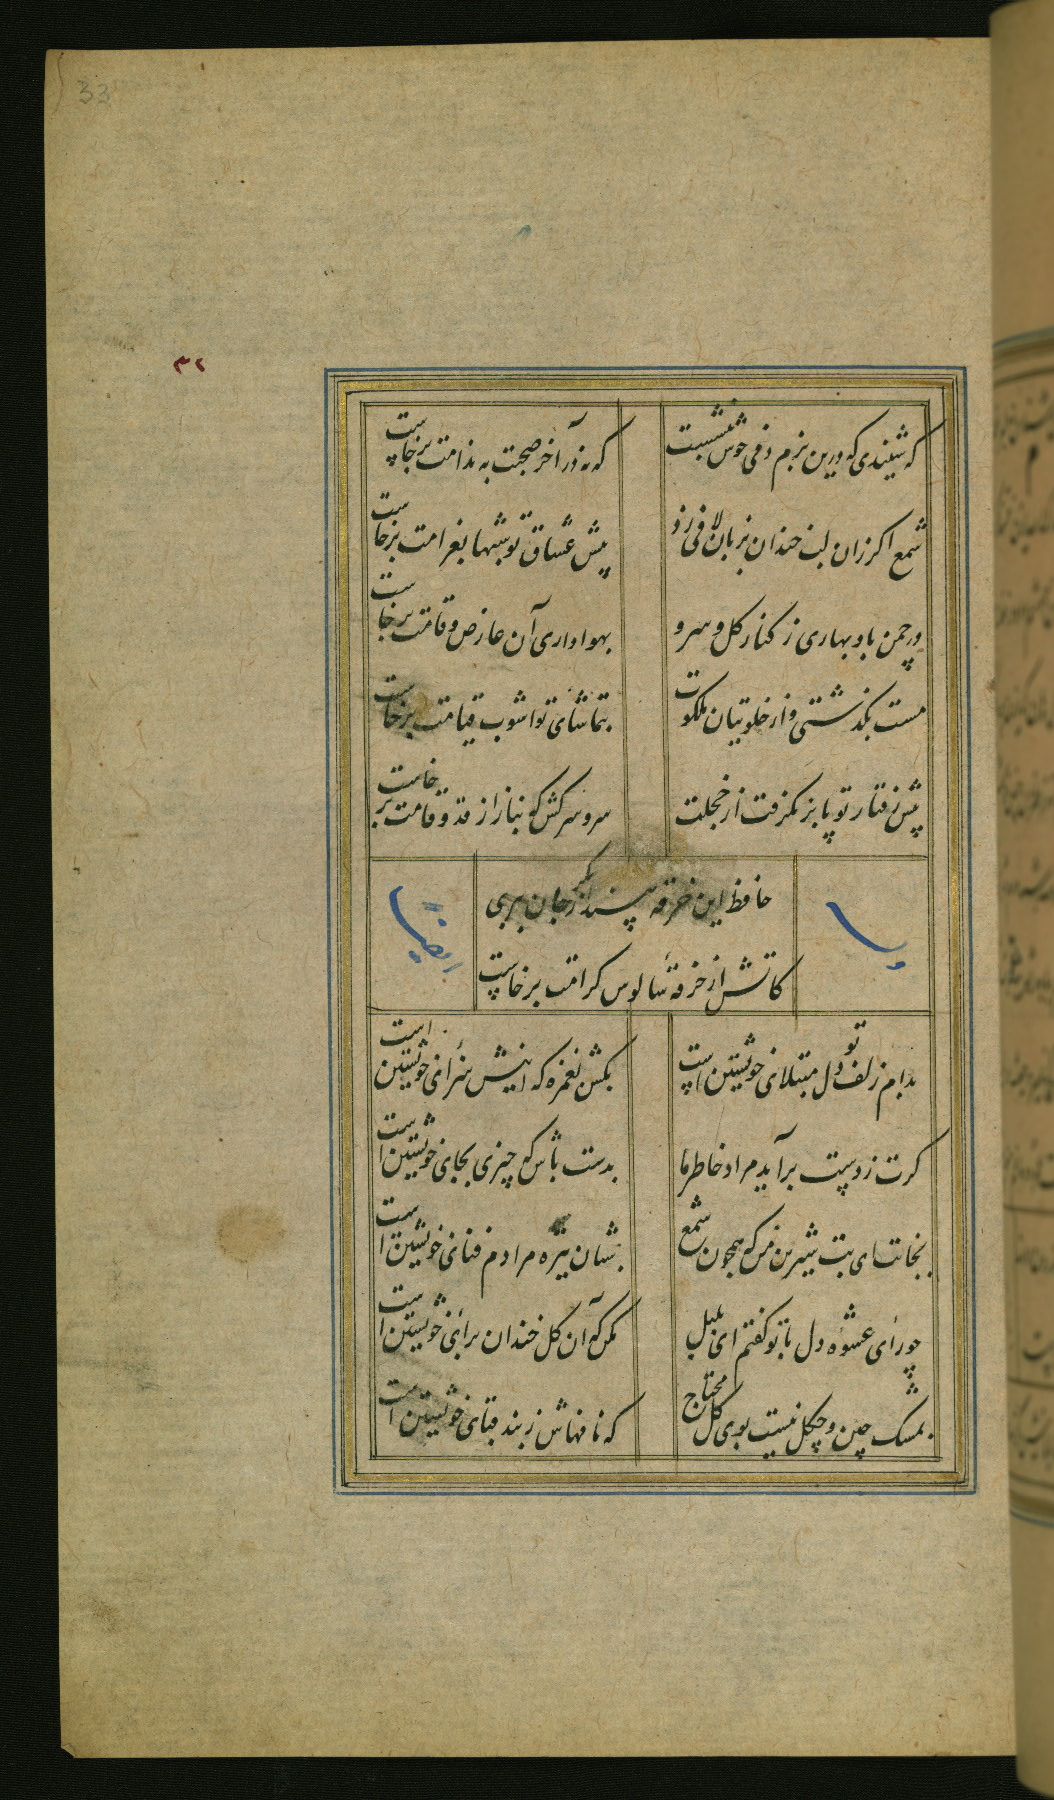 33
۳۲
که شنیدی که درین بزم دمی خوش بنشست
که نه در آخر صحبت به ندامت برخاست
شمع اگر زان لب خندان بزبان لافی زد
پیش عشاق تو شبها بغرامت برخاست
در چمن باد بهاری ز کنار گل و سرو
بهواداری آن عارض و قامت برخاست
مست بگذشتی و از خلوتیان ملکوت
بتماشای تو آشوب قیامت برخاست
پیش رفتار تو پا بر نگرفت از خجلت
سرو سرکش که بناز از قد و قامت برخاست
حافظ این خرقه بینداز مگر جان ببری
کاتش از خرقه سالوس کرامت برخاست
وله ایضاً
بدام زلف تو دل مبتلای خویشتن است
بکش بغمزه که اینش سزای خویشتن است
گرت ز دست برآید مراد خاطر ما
بدست باش که چیزی بجای خویشتن است
بجانت ای بت شیرین من که همچون شمع
شبان تیره مرادم فنای خویشتن است
چو رای عشق زدی با تو گفتم ای بلبل
مکن که آن گل خندان برای خویشتن است
بمشک چین و چگل نیست بوی گل محتاج
که نافهاش ز بند قبای خویشتن است